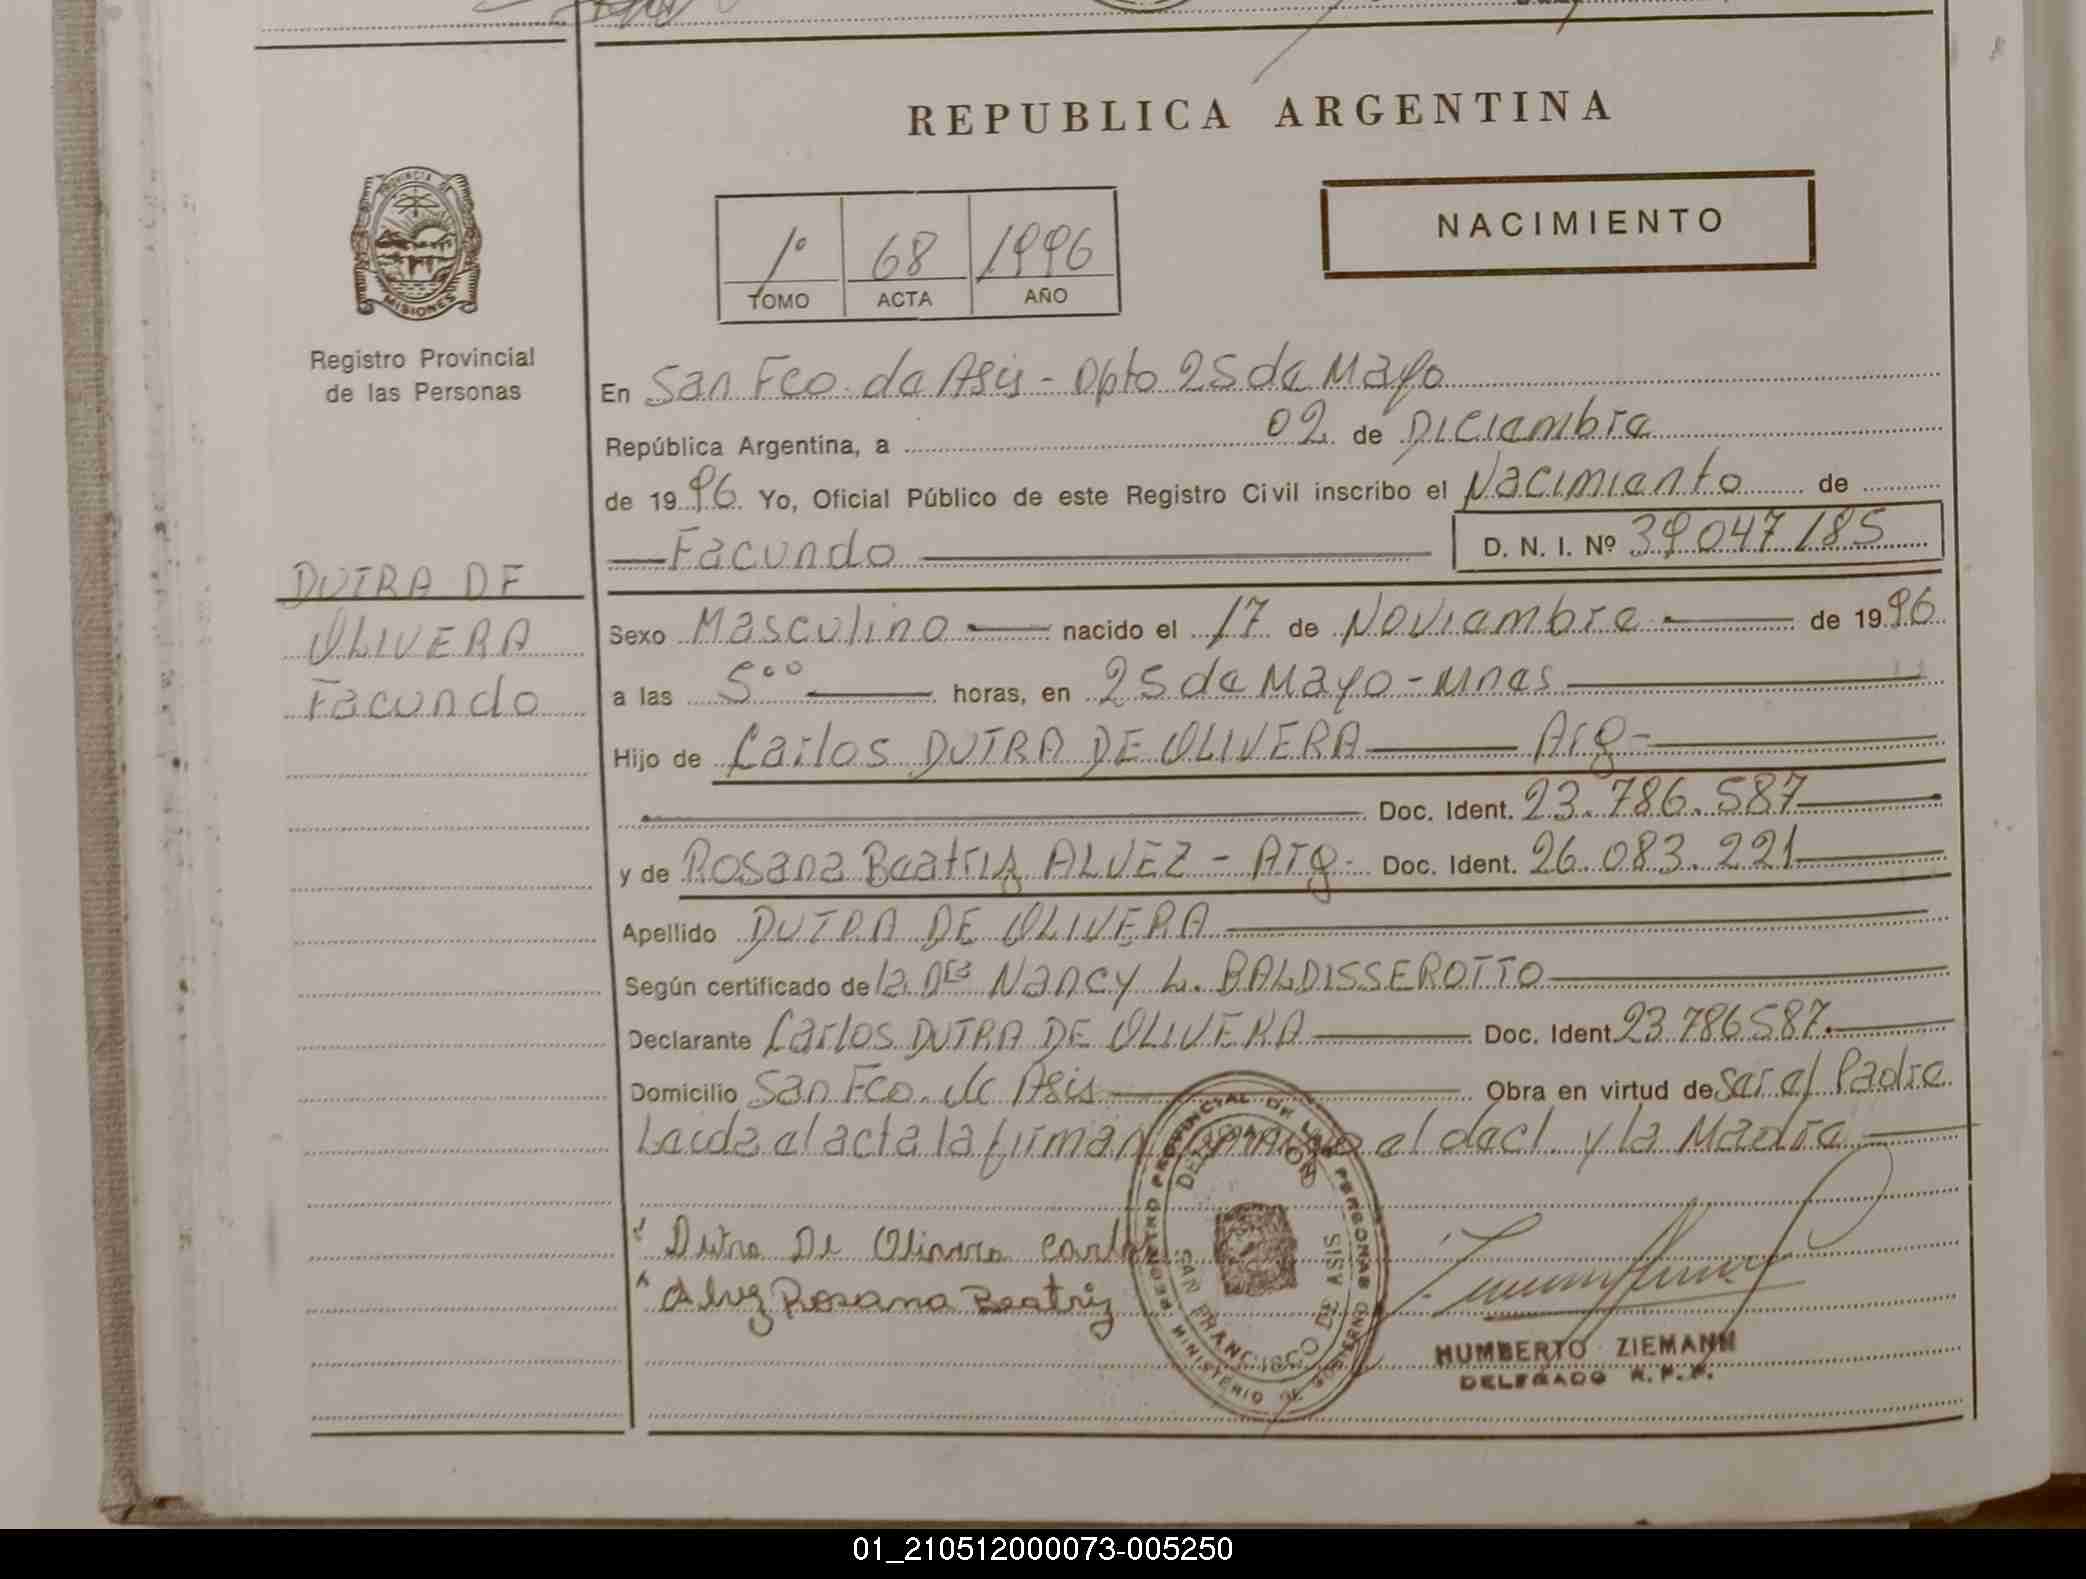 REPUBLICA ARGENTINA
PROVINCIA DE
MISIONES
Registro Provincial
de las Personas
NACIMIENTO
1º 68 1996
TOMO ACTA AÑO
En San Fco. de Asis - Dpto 25 de Mayo
República Argentina, a 02 de Diciembre
de 1996 Yo, Oficial Público de este Registro Civil inscribo el Nacimiento de
Facundo D. N. I. Nº 39047185
DUTRA DE
OLIVERA
Facundo
Sexo Masculino nacido el 17 de Noviembre de 1996
a las 5ºº horas, en 25 de Mayo - Mnes
Hijo de Carlos DUTRA DE OLIVERA Arg-
Doc. Ident. 23.786.587
y de Rosana Beatriz ALVEZ - Arg- Doc. Ident. 26.083.221
Apellido DUTRA DE OLIVERA
Según certificado de la Dra Nancy L. BALDISSEROTTO
Declarante Carlos DUTRA DE OLIVERA Doc. Ident. 23.786587.
Domicilio San Fco. de Asis Obra en virtud de ser el Padre
Leida el acta la firman conmigo el decl. y la Madre
Dutra De Olivera Carlos
Alvez Rosana Beatriz
REGISTRO PROVINCIAL DE LAS PERSONAS
MINISTERIO DE GOBIERNO
DELEGACION
SAN FRANCISCO DE ASIS
HUMBERTO ZIEMANN
DELEGADO R. P. P.
01_210512000073-005250